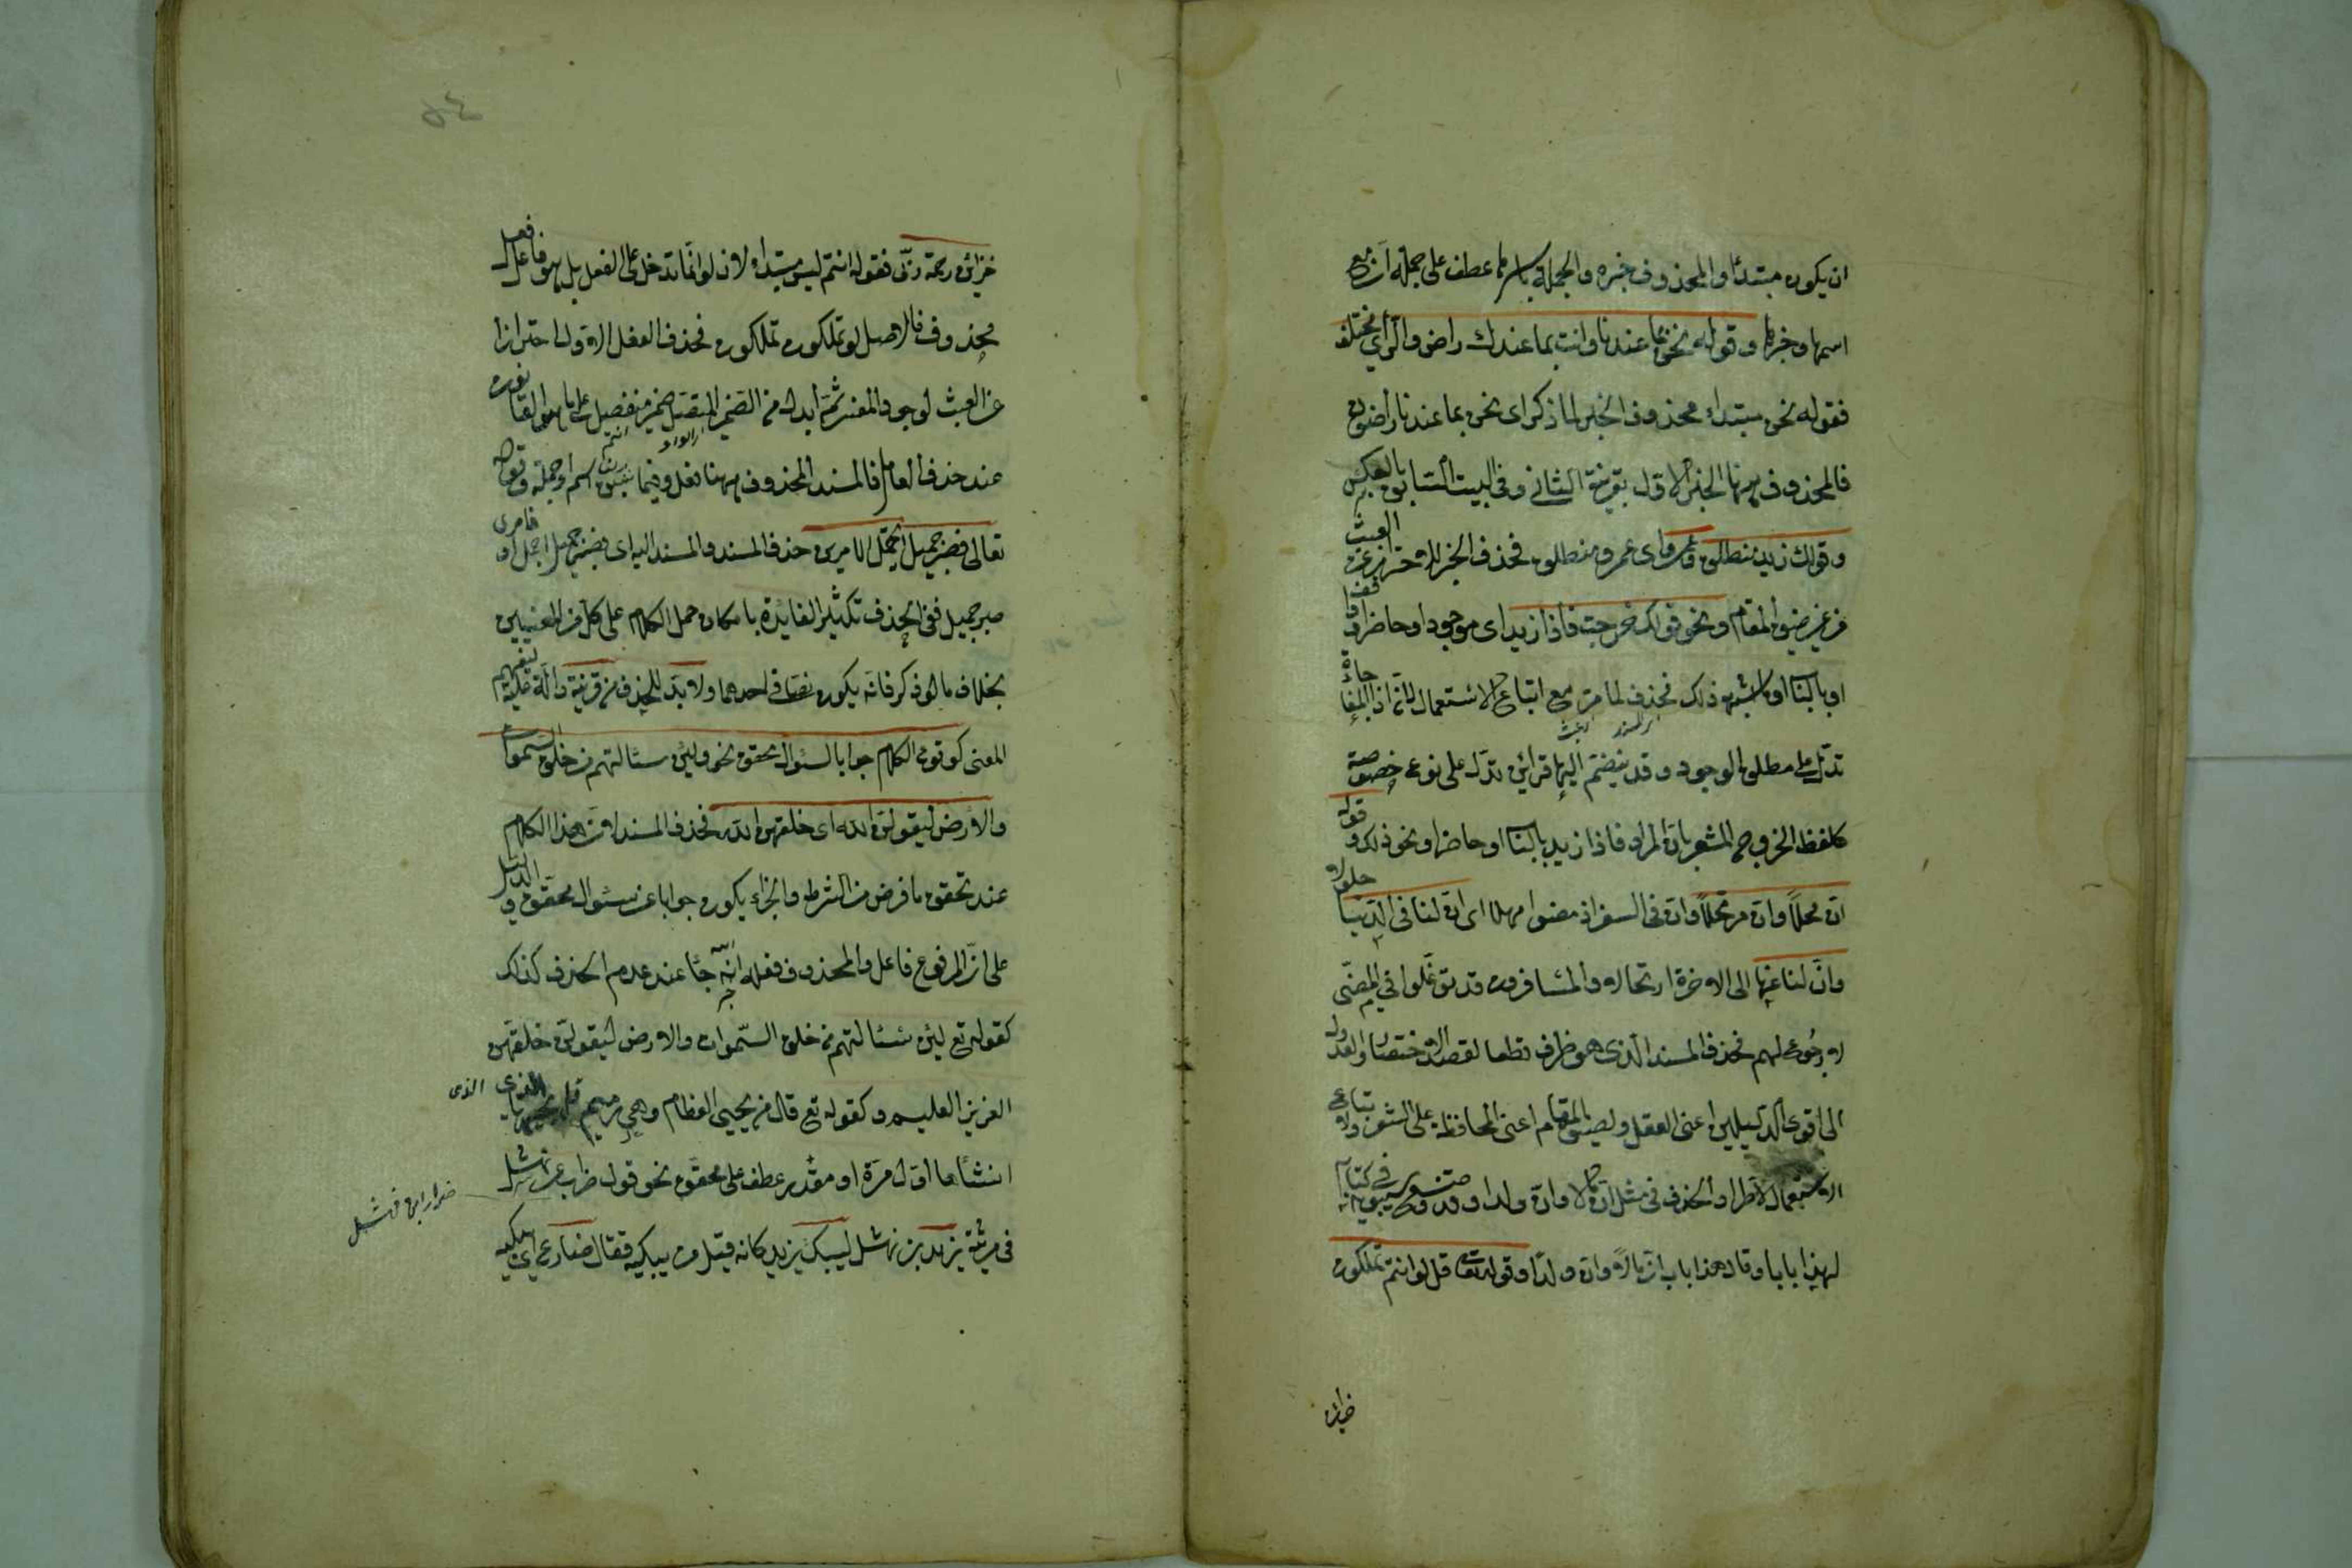 ان يكون مبتدأ والمحذوف خبره والجملة باسرها عطف على جملة ان مع
اسمها وخبرها وقوله نحن بما عندنا وانت بما عندك راض والرأي مختلف
فقوله نحن مبتداء محذوف الخبر لما ذكر اى نحن بما عندنا راضون
فالمحذوف ههنا الخبر الاول بقرينة الثانى وفى البيت السابق بالعكس
وقولك زيد منطلق وعمرو اى عمرو منطلق فحذف الخبر للاحتراز عن العبث
من غير ضيق المقام ونحو قولك خرجت فاذا زيد اى موجود او حاضر او واقف
او بالباب او ما اشبه ذلك فحذف لما مر مع اتباع الاستعمال لان اذا المفاجاة
تدل على مطلق الوجود وقد ينضم اليها قرائن تدل على نوع خصوصية
كلفظ الخروج المشعر بان المراد فاذا زيد بالباب او حاضر او نحو ذلك وقوله
ان محلا وان مرتحلا وان فى السفر اذ مضوا مهلا اى ان لنا فى الدنيا حلولا
وان لنا عنها الى الاخرة ارتحالا والمسافرون قد توغلوا فى المضى
لا رجوع لهم فحذف المسند الذى هو ظرف قطعا لقصد الاختصار والعدول
الى اقوى الدليلين اعنى العقل ولضيق المقام اعنى المحافظة على الشعر ولاتباع
الاستعمال لاطراد الحذف فى مثل ان مالا وان ولدا وقد وضع سيبويه فى كتابه
لهذا بابا وقال هذا باب ان مالا وان ولدا وقوله تعالى قل لو انتم تملكون
خزائن
خزائن رحمة ربى فقوله انتم ليس مبتداء لان لو انما تدخل على الفعل بل هو فاعل فعل
محذوف فالاصل لو تملكون تملكون فحذف الفعل الاول احترازا
عن العبث لوجود المفسر ثم ابدل من الضمير المتصل ضمير منفصل على ما هو القانون
عند حذف العامل فالمسند المحذوف ههنا فعل وفيما سبق اسم او جملة وقوله
تعالى فصبر جميل يحتمل الامرين حذف المسند والمسند اليه اى فصبر جميل اجمل او فامرى
صبر جميل ففى الحذف تكثير الفايدة بامكان حمل الكلام على كل من المعنيين
بخلاف ما لو ذكر فانه يكون نصا فى احدهما ولا بد للحذف من قرينة دالة عليه ليفهم
المعنى كوقوع الكلام جوابا لسؤال محقق نحو ولئن سئالتهم من خلق السموات
والارض ليقولن الله اى خلقهن الله فحذف المسند لان هذا الكلام
عند تحقق ما فرض من الشرط والجزاء يكون جوابا عن سئوال محقق والدليل
على ان المرفوع فاعل والمحذوف فعله انه جاء عند عدم الحذف كذلك
كقوله تع لئن سئالتهم من خلق السموات والارض ليقولن خلقهن
العزيز العليم وكقوله تع قال من يحيى العظام وهى رميم قل يحييها الذى
الذى
انشأها اول مرة او مقدر عطف على محقق نحو قول ضرار بن نهشل
ضرار ابن نهشل
فى مرثية يزيد بن نهشل ليبك يزيد كانه قيل من يبكيه فقال ضارع اى يبكيه